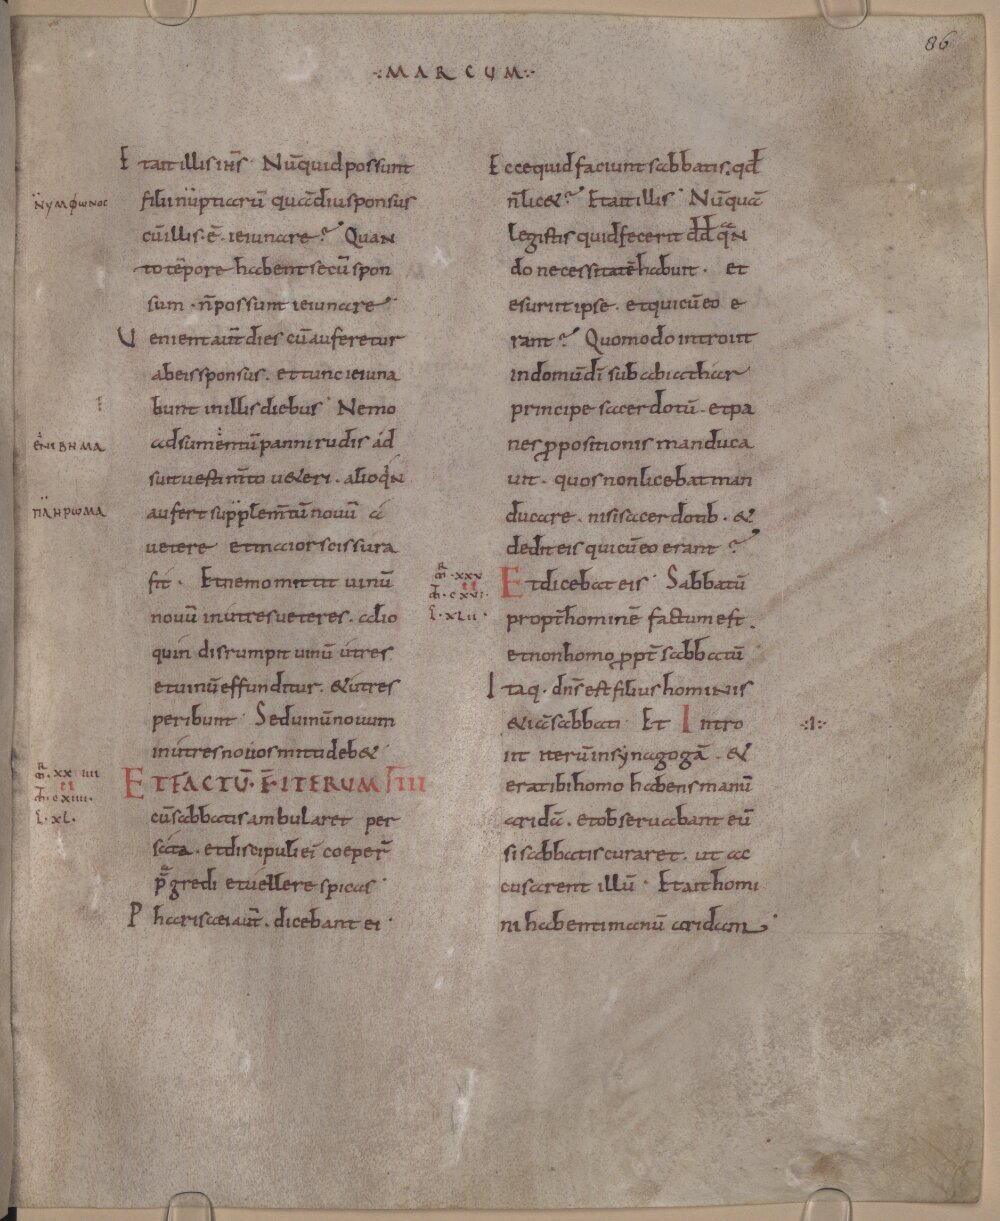 86
·:MARCUM:·
Et ait illis ih̄s · Nūquid possunt
filii nuptiarū quādiu sponsus
cū illis · ē · ieiunare? Quan
to tēpore habent secū spon
sum · n̄ possunt ieiunare ·
Uenient aut̄ dies cū auferetur
ab eis sponsus · et tunc ieiuna
bunt in illis diebus · Nemo
adsumentū panni rudis ad
suit vestim̄to ueteri · alioq̇N
aufert supplem̄tū nouū a
uetere et maior scissura
fit · Et nemo mittit uinū
nouū in utres ueteres · alio
quin disrumpit uinū utres
et uinū effunditur · & utres
peribunt · Sed uinū nouum
in utres nouos mitti deb&
ET FACTŪ · Ē · ITERUM
cū sabbatis ambularet per
sata · et discipuli ei coeper̄
p̄gredi et uellere spicas ·
Pharisaei aut̄ · dicebant ei ·
νυμφωνος
ἐπιβημα
πληρωμα
m̄ · xx iiii
m̄ · cxiiii ·
l · xl ·
Ecce quid faciunt sabbatis · qd̄
n̄ lic&? Et ait illis · Nūquā
legistis quid fecerit dd̄ qN
do necessitatē habuit · et
esuriit ipse · et qui cū eo e
rant? Quomodo introiit
in domū dī sub abiathar
principe sacerdotū · et pa
nes propositionis manduca
uit · quos non liceba​t man
ducare · nisi sacerdotib · &
dedit eis qui cū eo erant?
Et dicebat eis · Sabbatū
propt̄ hominē factum est ·
et non homo propt̄ sabbatū
Itaq · dn̄s est filius hominis
& iā sabbati · Et Intro
iit iterū in synagogā · &
erat ibi homo habens manū
aridā · et obseruabant eū
si sabbatis curaret · ut ac
cusarent illū · Et ait homi
ni habenti manū aridam ·
m̄ · xxv
m̄ · cxvi ·
l · xlii ·